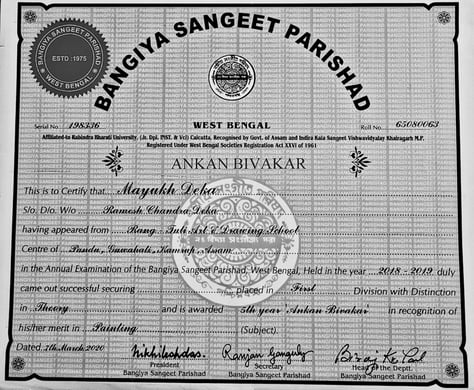 BANGIYA SANGEET PARISHAD
BANGIYA SANGEET PARISHAD
ESTD : 1975
WEST BENGAL
Serial No. 198336
WEST BENGAL
Roll No. 65080063
Affiliated-to Rabindra Bharati University, (Jr. Dpl. INST. & Vcl) Calcutta, Recognised by Govt. of Assam and Indira Kala Sangeet Vishwavidyalay Khairagarh M.P.
Registered Under West Bengal Societies Registration Act XXVI of 1961
ANKAN BIVAKAR
This is to Certify that... Mayukh Deka
S/o, D/o. W/o Ramesh Chandra Deka
having appeared from Rang - Tuli Art & Drawing School
Centre of Pandu, Guwahati, Kamrup, Assam
in the Annual Examination of the Bangiya Sangeet Parishad, West Bengal, Held in the year 2018 - 2019 duly
came out successful securing placed in First Division with Distinction
in Theory and is awarded 5th year 'Ankan Bivakar' in recognition of
his/her merit in Painting (Subject).
Dated 7th March 2020
President
Bangiya Sangeet Parishad
Ranjan Ganguly
Secretary
Bangiya Sangeet Parishad
Head of the Deptt.
Bangiya Sangeet Parishad